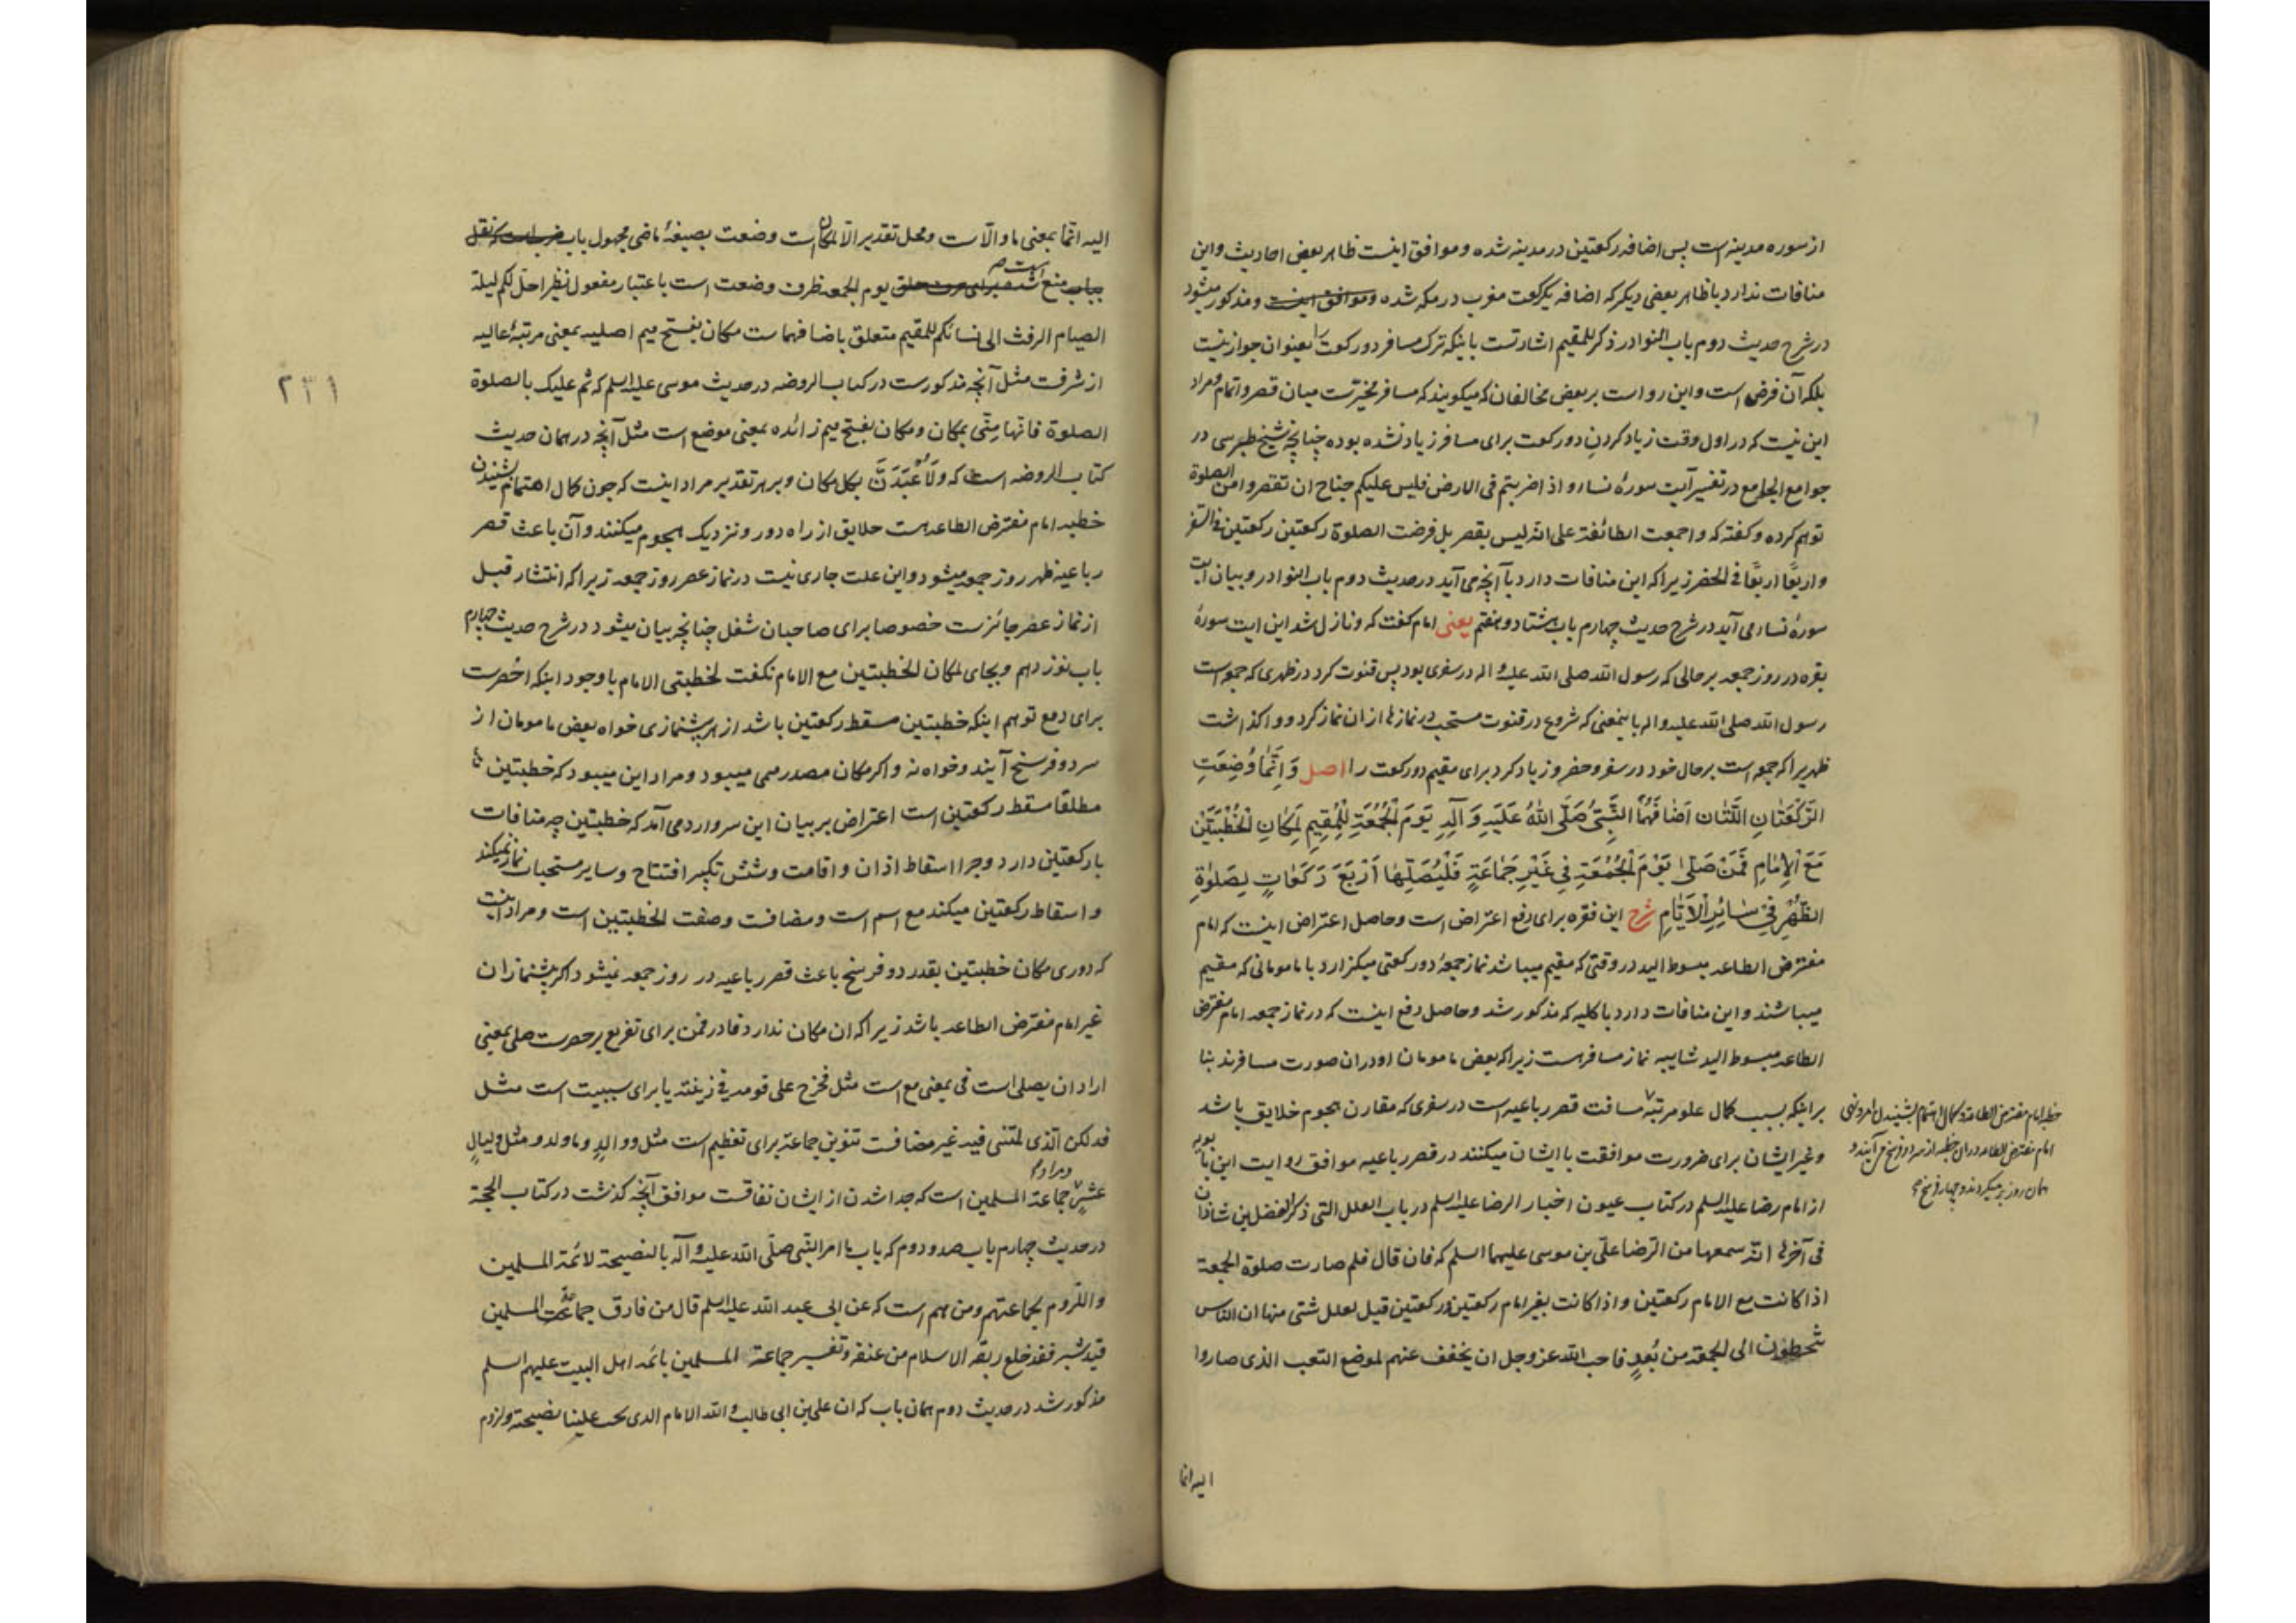 از سوره مدینه است پس اضافه رکعتین در مدینه شده و موافق اینست ظاهر بعض احادیث و این
منافات ندارد با ظاهر بعضی دیکر که اضافه یکرکعت مغرب در مکه شده وموافق اینست و مذکور میشود
در شرح حدیث دوم باب النوادر ذکر للمقیم اشارتست باینکه ترک مسافر دو رکعت را بعنوان جواز نیست
بلکه آن فرض است و این رو است بر بعض مخالفان که میکویند که مسافر مخیرست میان قصر و اتمام و مراد
این نیست که در اول وقت زیاد کردن دو رکعت برای مسافر زیاد نشده بوده چنانچه شیخ طبرسی در
جوامع الجامع در تفسیر آیت سورهٔ نساء و اذا ضربتم فی الارض فلیس علیکم جناح ان تقصروا من الصلوة
توهم کرده و کفته که و اجمعت الطائفة علی انه لیس بقصر بل فرضت الصلوة رکعتین رکعتین فی السفر
و اربعًا اربعًا فی الحضر زیرا که این منافات دارد با آنچه می آید در حدیث دوم باب النوادر و بیان آیت
سورهٔ نساء می آید در شرح حدیث چهارم باب هشتاد و هفتم یعنی امام کفت که و نازل شد این ایت سورهٔ
بقره در روز جمعه بر حالی که رسول الله صلی الله علیه و اله در سفری بود پس قنوت کرد در ظهری که جمعه است
رسول الله صلی الله علیه و اله باینمعنی که شروع در قنوت مستحب در نمازها ازان نماز کرد و واکذاشت
ظهریرا که جمعه است بر حال خود در سفر و حضر و زیاد کرد برای مقیم دو رکعت را اصل وَ اِنَّمَا وُضِعَتِ
الرَّکْعَتَانِ اللَّتَان اَضَافَهُمَا النَّبِیُّ صَلَّی اللهُ عَلَیْهِ وَ آلِهِ یَوْمَ الْجُمُعَةِ لِلْمُقِیمِ لِمَکَانِ الْخُطْبَتَیْنِ
مَعَ الْاِمَامِ فَمَنْ صَلّیٰ یَوْمَ الْجُمُعَةِ فِی غَیْرِ جَمَاعَةٍ فَلْیُصَلِّهَا اَرْبَعَ رَکَعَاتٍ کَصَلٰوةِ
الظُّهْرِ فِی سَائِرِ الْاَیَّامِ شرح این فقره برای دفع اعتراض است و حاصل اعتراض اینست که امام
مفترض الطاعه مبسوط الید در وقتی که مقیم میباشد نماز جمعهٔ دو رکعتی میکزارد با مامومانی که مقیم
میباشند و این منافات دارد با کلیه که مذکور شد و حاصل دفع اینست که در نماز جمعه امام مفترض
الطاعه مبسوط الید شاییبه نماز مسافرست زیرا که بعض مامومان او در ان صورت مسافرند بنا
بر اینکه بسبب کمال علو مرتبه مسافت قصر رباعیه است در سفری که مقارن هجوم خلایق باشد
و غیر ایشان برای ضرورت موافقت با ایشان میکنند در قصر رباعیه موافق روایت ابن بابویه
از امام رضا علیه السلم در کتاب عیون اخبار الرضا علیه السلم در باب العلل التی ذکر الفضل بن شاذان
فی آخرها انّه سمعها من الرّضا علیّ بن موسی علیهما السلم که فان قال فلم صارت صلوة الجمعة
اذا کانت مع الامام رکعتین و اذا کانت بغیر امام رکعتین ورکعتین قیل لعلل شتی منها ان الناس
یتخطون الی الجمعة من بُعدٍ فاحب الله عز و جل ان یخفف عنهم لموضع التعب الذی صاروا
خطبه امام مفترض الطاعه و کمال اهتمام بشنیدن امر و نهی
امام مفترض الطاعه دران خطبه از سر دو فرسخ می آیند و
همان روز بر میکردند و چهار فرسخ
الیه انما
الیه انّما بمعنی ما و الّا ست و محل تقدیر الّا لمکان است وضعت بصیغهٔ ماضی مجهول باب ضرب است که نقل
بباب منع است یوم الجمعه ظرف وضعت است باعتبار مفعول نظیر احلّ لکم لیلة
الصیام الرفث الی نسائکم للمقیم متعلق باضافهما ست مکان بفتح میم اصلیه بمعنی مرتبهٔ عالیه
از شرفت مثل آنچه مذکورست در کتاب الروضه در حدیث موسی علیه السلم که ثم علیک بالصلوة
الصلوة فانها منّی بمکان و مکان بفتح میم زائده بمعنی موضع است مثل آنچه در همان حدیث
کتاب الروضه است که ولَاُعْبَدَنَّ بکل مکان و بر هر تقدیر مراد اینست که چون کمال اهتمام بشنیدن
خطبه امام مفترض الطاعه است حلایق از راه دور و نزدیک هجوم میکنند و آن باعث قصر
رباعیه ظهر روز جمعه میشود و این علت جاری نیست در نماز عصر روز جمعه زیرا که انتشار قبل
از نماز عصر جائزست خصوصا برای صاحبان شغل چنانچه بیان میشود در شرح حدیث چهارم
باب نوزدهم و بجای لمکان الخطبتین مع الامام نکفت لخطبتی الامام با وجود اینکه اخصرست
برای دفع توهم اینکه خطبتین مسقط رکعتین باشد از هر پیشنمازی خواه بعض مامومان از
سر دو فرسخ آیند و خواه نه و اکر مکان مصدر میمی میبود و مراد این میبود که خطبتین
مطلقا مسقط رکعتین است اعتراض بر بیان این سر وارد می آمد که خطبتین چه منافات
با رکعتین دارد و چرا اسقاط اذان و اقامت و شش تکبیر افتتاح و سایر مستحبات نماز نمیکند
و اسقاط رکعتین میکند مع اسم است و مضافت و صفت الخطبتین است و مراد اینست
که دوری مکان خطبتین بقدر دو فرسخ باعث قصر رباعیه در روز جمعه نمیشود اکر پیشنماز ان
غیر امام مفترض الطاعه باشد زیرا که ان مکان ندارد فا در فمن برای تفریع بر حصرست صلی بمعنی
اراد ان یصلی است فی بمعنی مع است مثل فخرج علی قومه فی زینته یا برای سببیت است مثل
فذلکن الّذی لمتننی فیه غیر مضافت تنوین جماعة برای تعظیم است مثل و والدٍ و ما ولد و مثل و لیالٍ
عشرٍ و مراد جماعة المسلمین است که جدا شدن از ایشان نفاقست موافق آنچه کذشت در کتاب الحجة
در حدیث چهارم باب صد و دوم که باب ما امر النّبی صلّی الله علیه و آله بالنصیحة لائمة المسلمین
و اللزوم لجماعتهم و من هم است که عن ابی عبد الله علیه السلم قال من فارق جماعة المسلمین
قید شبر فقد خلع ربقة الاسلام من عنقه و تفسیر جماعة المسلمین بائمه اهل البیت علیهم السلم
مذکور شد در حدیث دوم همان باب که ان علی بن ابی طالب و الله الامام الذی یجب علینا نصیحته ولزوم
۲۳۱